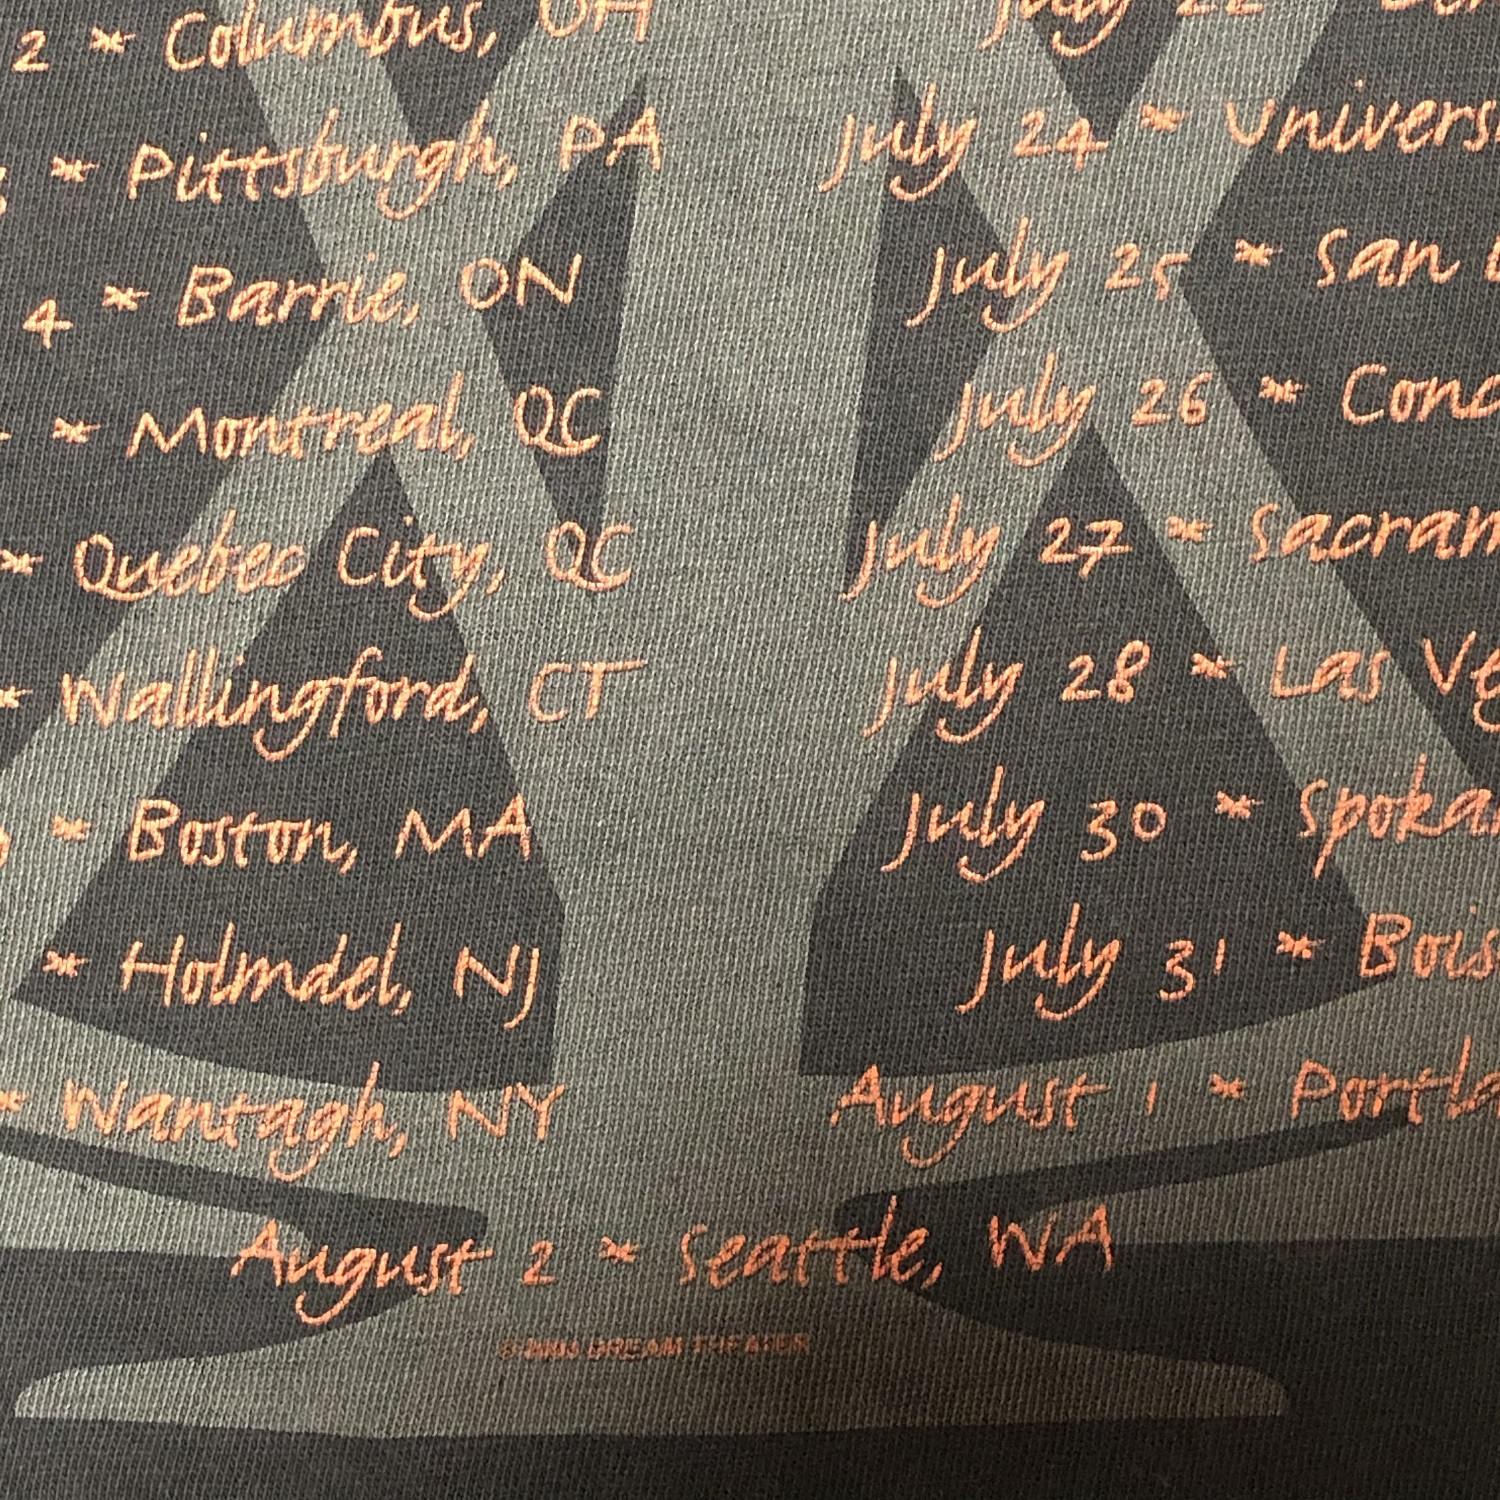 2 * Columbus, OH
* Pittsburgh, PA
4 * Barrie, ON
* Montreal, QC
* Quebec City, QC
* Wallingford, CT
* Boston, MA
* Holmdel, NJ
* Wantagh, NY
July 22 *
July 24 * Univers
July 25 * San
July 26 * Conc
July 27 * Sacram
July 28 * Las Veg
July 30 * Spokan
July 31 * Bois
August 1 * Portla
August 2 * Seattle, WA
© DREAM THEATER